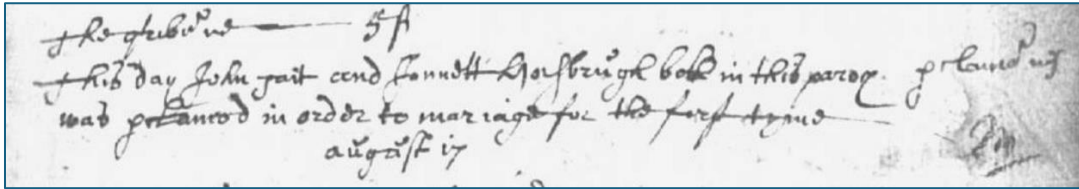 The qribūne — 5 ß
This day John pait and Jonnett Horsbrugh both in this paroq.
was pclamed in order to mariage for the first tyme
august 17